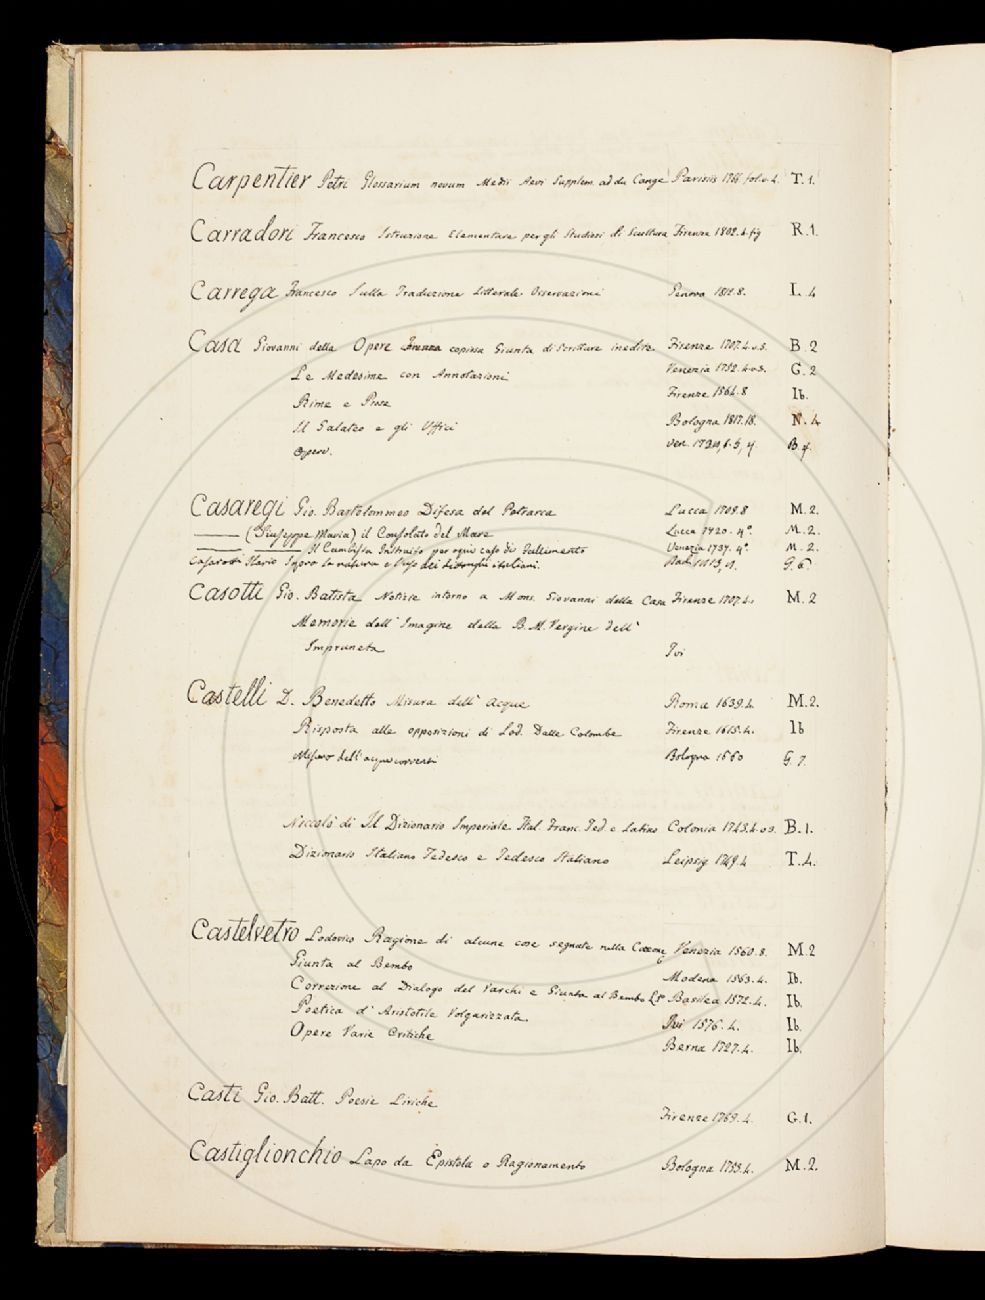 Carpentier Petri Glossarium novum Medii Aevi Supplem. ad du Cange Parisiis 1766 fol. v. 4. T.1.
Carradori Francesco Istruzione Elementare per gli Studiosi di Scultura Firenze 1802. 4. fig R.1.
Carrega Francesco Sulla Traduzione Litterale Osservazioni Genova 1812. 8. L.4
Casa Giovanni della Opere copiosa Giunta di Scritture inedite Firenze 1707. 4. v. 3. B.2
Le Medesime con Annotazioni Venezia 1752. 4. v. 3. G.2
Rime e Prose Firenze 1564. 8 Ib.
Il Galateo e gli Uffici Bologna 1817. 18. N.4
Opere. Ven. B.
Casaregi Gio. Bartolommeo Difesa del Petrarca Lucca 1709. 8 M.2.
(Giuseppe Maria) il Consolato del Mare Lucca 1720. 4.° M.2.
Il Cambista Instruito per ogni caso di Fallimento Venezia 1737. 4.° M.2.
Casarotti Ilario Sopra la natura e l'uso dei dittonghi italiani. Pad. 1813, G.6
Casotti Gio. Batista Notizie intorno a Mons. Giovanni della Casa Firenze 1707. 4. M.2
Memorie dell' Imagine della B. M. Vergine dell'
Impruneta Ivi
Castelli D. Benedetto Misura dell' Acque Roma 1639. 4. M.2.
Risposta alle opposizioni di Lod. Delle Colombe Firenze 1615. 4. Ib
Misura dell'acque correnti Bologna 1660 G.7.
Niccolò di Il Dizionario Imperiale Ital. Franc. Ted. e Latino Colonia 1743. 4. v 3. B.1.
Dizionario Italiano Tedesco e Tedesco Italiano Leipsig 1749. 4 T.4.
Castelvetro Lodovico Ragione di alcune cose segnate nella Canzone Venezia 1560. 8. M.2
Giunta al Bembo Modena 1563. 4. Ib.
Correzione al Dialogo del Varchi e Giunta al Bembo L.° Basilea 1572. 4. Ib.
Poetica d' Aristotile Volgarizzata Ivi 1576. 4. Ib.
Opere Varie Critiche Berna 1727. 4. Ib.
Casti Gio. Batt. Poesie Liriche Firenze 1769. 4. G.1.
Castiglionchio Lapo da Epistola o Ragionamento Bologna 1753. 4. M.2.